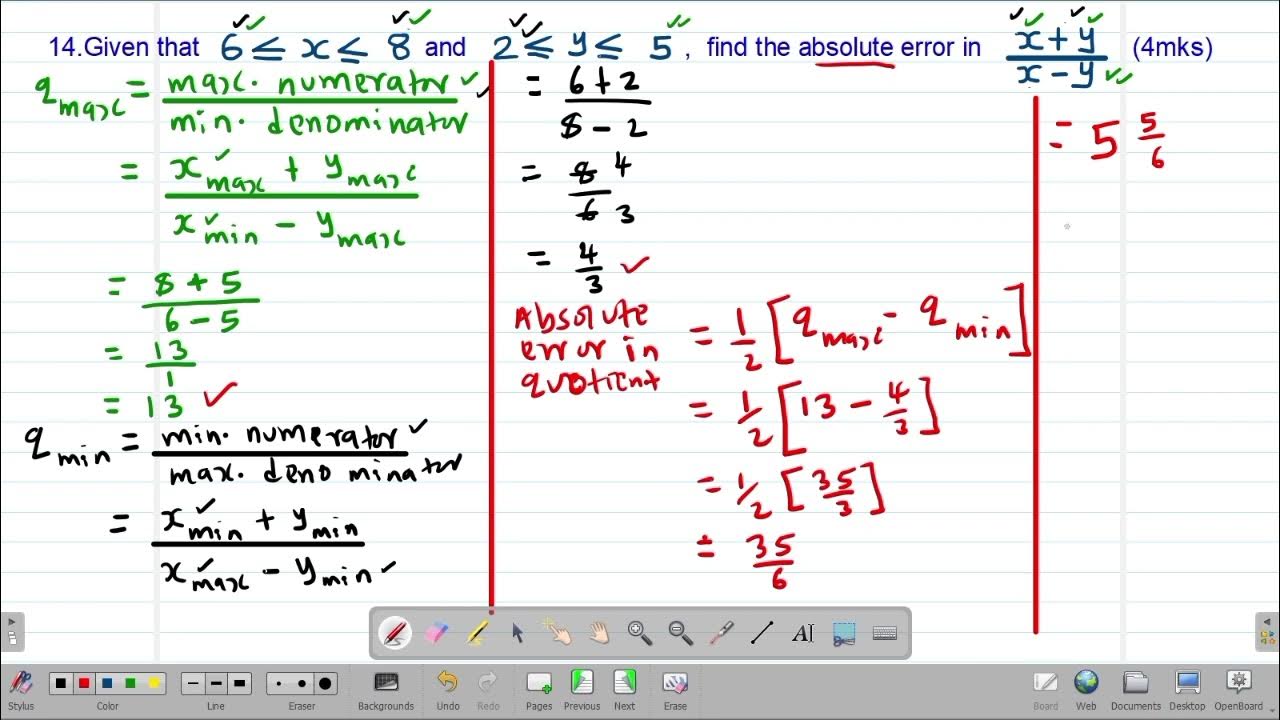 14.Given that 6 ≤ x ≤ 8 and 2 ≤ y ≤ 5, find the absolute error in (x + y)/(x - y) (4mks)
q max = max. numerator / min. denominator
= x max + y max / x min - y max
= 8 + 5 / 6 - 5
= 13 / 1
= 13
q min = min. numerator / max. denominator
= x min + y min / x max - y min
= 6 + 2 / 8 - 2
= 8 4 / 6 3
= 4/3
Absolute error in quotient = 1/2 [q max - q min]
= 1/2 [13 - 4/3]
= 1/2 [35/3]
= 35/6
= 5 5/6
Stylus Color Line Eraser Backgrounds Undo Redo Pages Previous Next Erase Board Web Documents Desktop OpenBoard